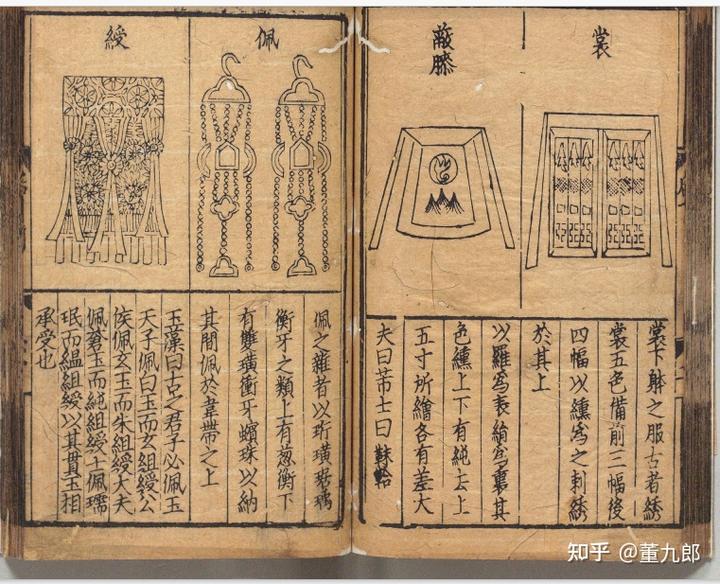 裳
蔽膝
裳下躰之服古者綉
裳五色備前三幅後
四幅以纁爲之刺綉
於其上
以羅爲表絹爲裏其
色纁上下有純去上
五寸所繪各有差大
夫曰芾士曰韎韐
佩
綬
佩之雜者以珩璜琚瑀
衡牙之類上有葱衡下
有雙璜衝牙蠙珠以納
其間佩於韋帶之上
玉藻曰古之君子必佩玉
天子佩白玉而玄組綬公
侯佩玄玉而朱組綬大夫
佩蒼玉而純組綬士佩瓀
珉而縕組綬以其貫玉相
承受也
知乎 @董九郎